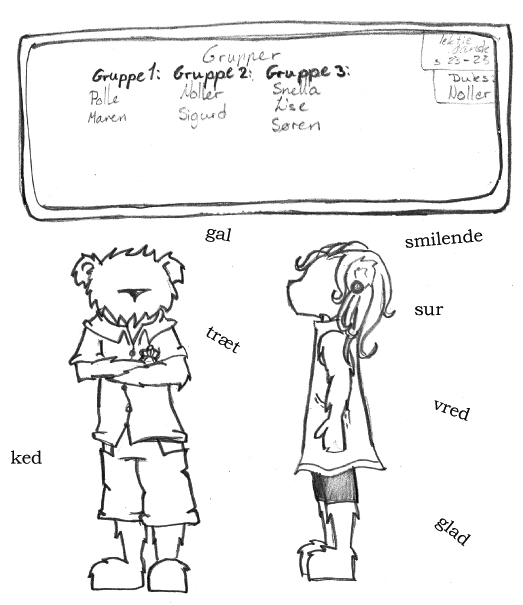 Grupper
Gruppe 1: Gruppe 2: Gruppe 3:
Polle Noller Snella
Maren Sigurd Lise
Søren
lektie
dansk
s 23-23
Duks:
Noller
gal
smilende
sur
træt
vred
ked
glad